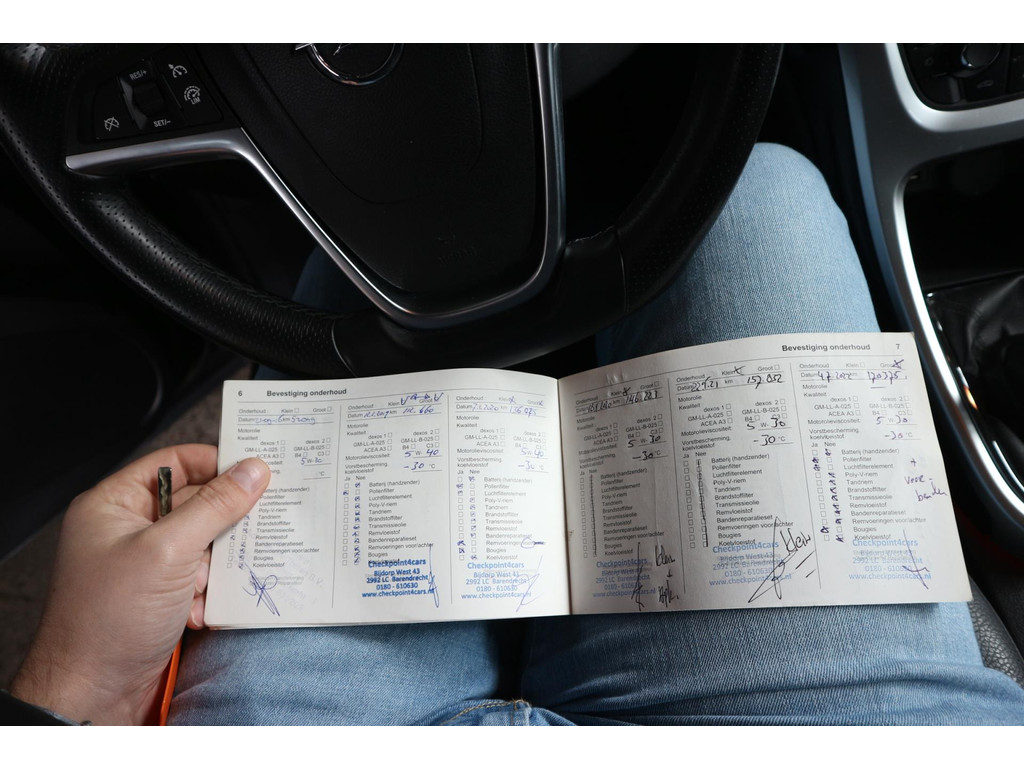 RES/+
SET/–
LIM
6 Bevestiging onderhoud
Onderhoud: Klein Groot
Datum
Motorolie
Kwaliteit:
dexos 1 dexos 2
GM-LL-A-025 GM-LL-B-025
ACEA A3 B4 C3
5 W-30
°C
Batterij (handzender)
Pollenfilter
Luchtfilterelement
Poly-V-riem
Tandriem
Brandstoffilter
Transmissieolie
Remvloeistof
Bandenreparatieset
Remvoeringen voor/achter
Bougies
Koelvloeistof
Onderhoud: Klein Groot
Datum
Motorolie
Kwaliteit:
dexos 1 dexos 2
GM-LL-A-025 GM-LL-B-025
ACEA A3 B4 C3
Motorolieviscositeit:
5 W-40
Vorstbescherming
koelvloeistof
-30 °C
Ja Nee
Batterij (handzender)
Pollenfilter
Luchtfilterelement
Poly-V-riem
Tandriem
Brandstoffilter
Transmissieolie
Remvloeistof
Bandenreparatieset
Remvoeringen voor/achter
Bougies
Koelvloeistof
Checkpoint4cars
Bijdorp West 43
2992 LC Barendrecht
0180 - 610630
www.checkpoint4cars.nl
Onderhoud: Klein Groot
Datum
Motorolie
Kwaliteit:
dexos 1 dexos 2
GM-LL-A-025 GM-LL-B-025
ACEA A3 B4 C3
Motorolieviscositeit:
5 W-40
Vorstbescherming
koelvloeistof
°C
Ja Nee
Batterij (handzender)
Pollenfilter
Luchtfilterelement
Poly-V-riem
Tandriem
Brandstoffilter
Transmissieolie
Remvloeistof
Bandenreparatieset
Remvoeringen voor/achter
Bougies
Koelvloeistof
Checkpoint4cars
Bijdorp West 43
2992 LC Barendrecht
0180 - 610630
www.checkpoint4cars.nl
Bevestiging onderhoud 7
km
Motorolie
Kwaliteit:
dexos 1 dexos 2
GM-LL-A-025 GM-LL-B-025
ACEA A3 B4 C3
Motorolieviscositeit:
5 W-30
Vorstbescherming
koelvloeistof
-30 °C
Ja Nee
Batterij (handzender)
Pollenfilter
Luchtfilterelement
Poly-V-riem
Tandriem
Brandstoffilter
Transmissieolie
Remvloeistof
Bandenreparatieset
Remvoeringen voor/achter
Bougies
Koelvloeistof
Checkpoint4cars
Bijdorp West 43
2992 LC Barendrecht
0180 - 610630
www.checkpoint4cars.nl
klein
Onderhoud: Klein Groot
Datum km 157.052
Motorolie
Kwaliteit:
dexos 1 dexos 2
GM-LL-A-025 GM-LL-B-025
ACEA A3 B4 C3
Motorolieviscositeit:
5 W-30
Vorstbescherming
koelvloeistof
-30 °C
Ja Nee
Batterij (handzender)
Pollenfilter
Luchtfilterelement
Poly-V-riem
Tandriem
Brandstoffilter
Transmissieolie
Remvloeistof
Bandenreparatieset
Remvoeringen voor/achter
Bougies
Koelvloeistof
klein
Checkpoint4cars
Bijdorp West 43
2992 LC Barendrecht
0180 - 610630
www.checkpoint4cars.nl
Onderhoud: Klein Groot
Datum 170375
Motorolie
Kwaliteit:
dexos 1 dexos 2
GM-LL-A-025 GM-LL-B-025
ACEA A3 B4 C3
Motorolieviscositeit:
5 W-30
Vorstbescherming
koelvloeistof
-30 °C
Ja Nee
Batterij (handzender)
Pollenfilter
Luchtfilterelement
Poly-V-riem
Tandriem
Brandstoffilter
Transmissieolie
Remvloeistof
Bandenreparatieset
Remvoeringen voor/achter
Bougies
Koelvloeistof
+
Voor-
banden
Checkpoint4cars
Bijdorp West 43
2992 LC Barendrecht
0180 - 610630
www.checkpoint4cars.nl